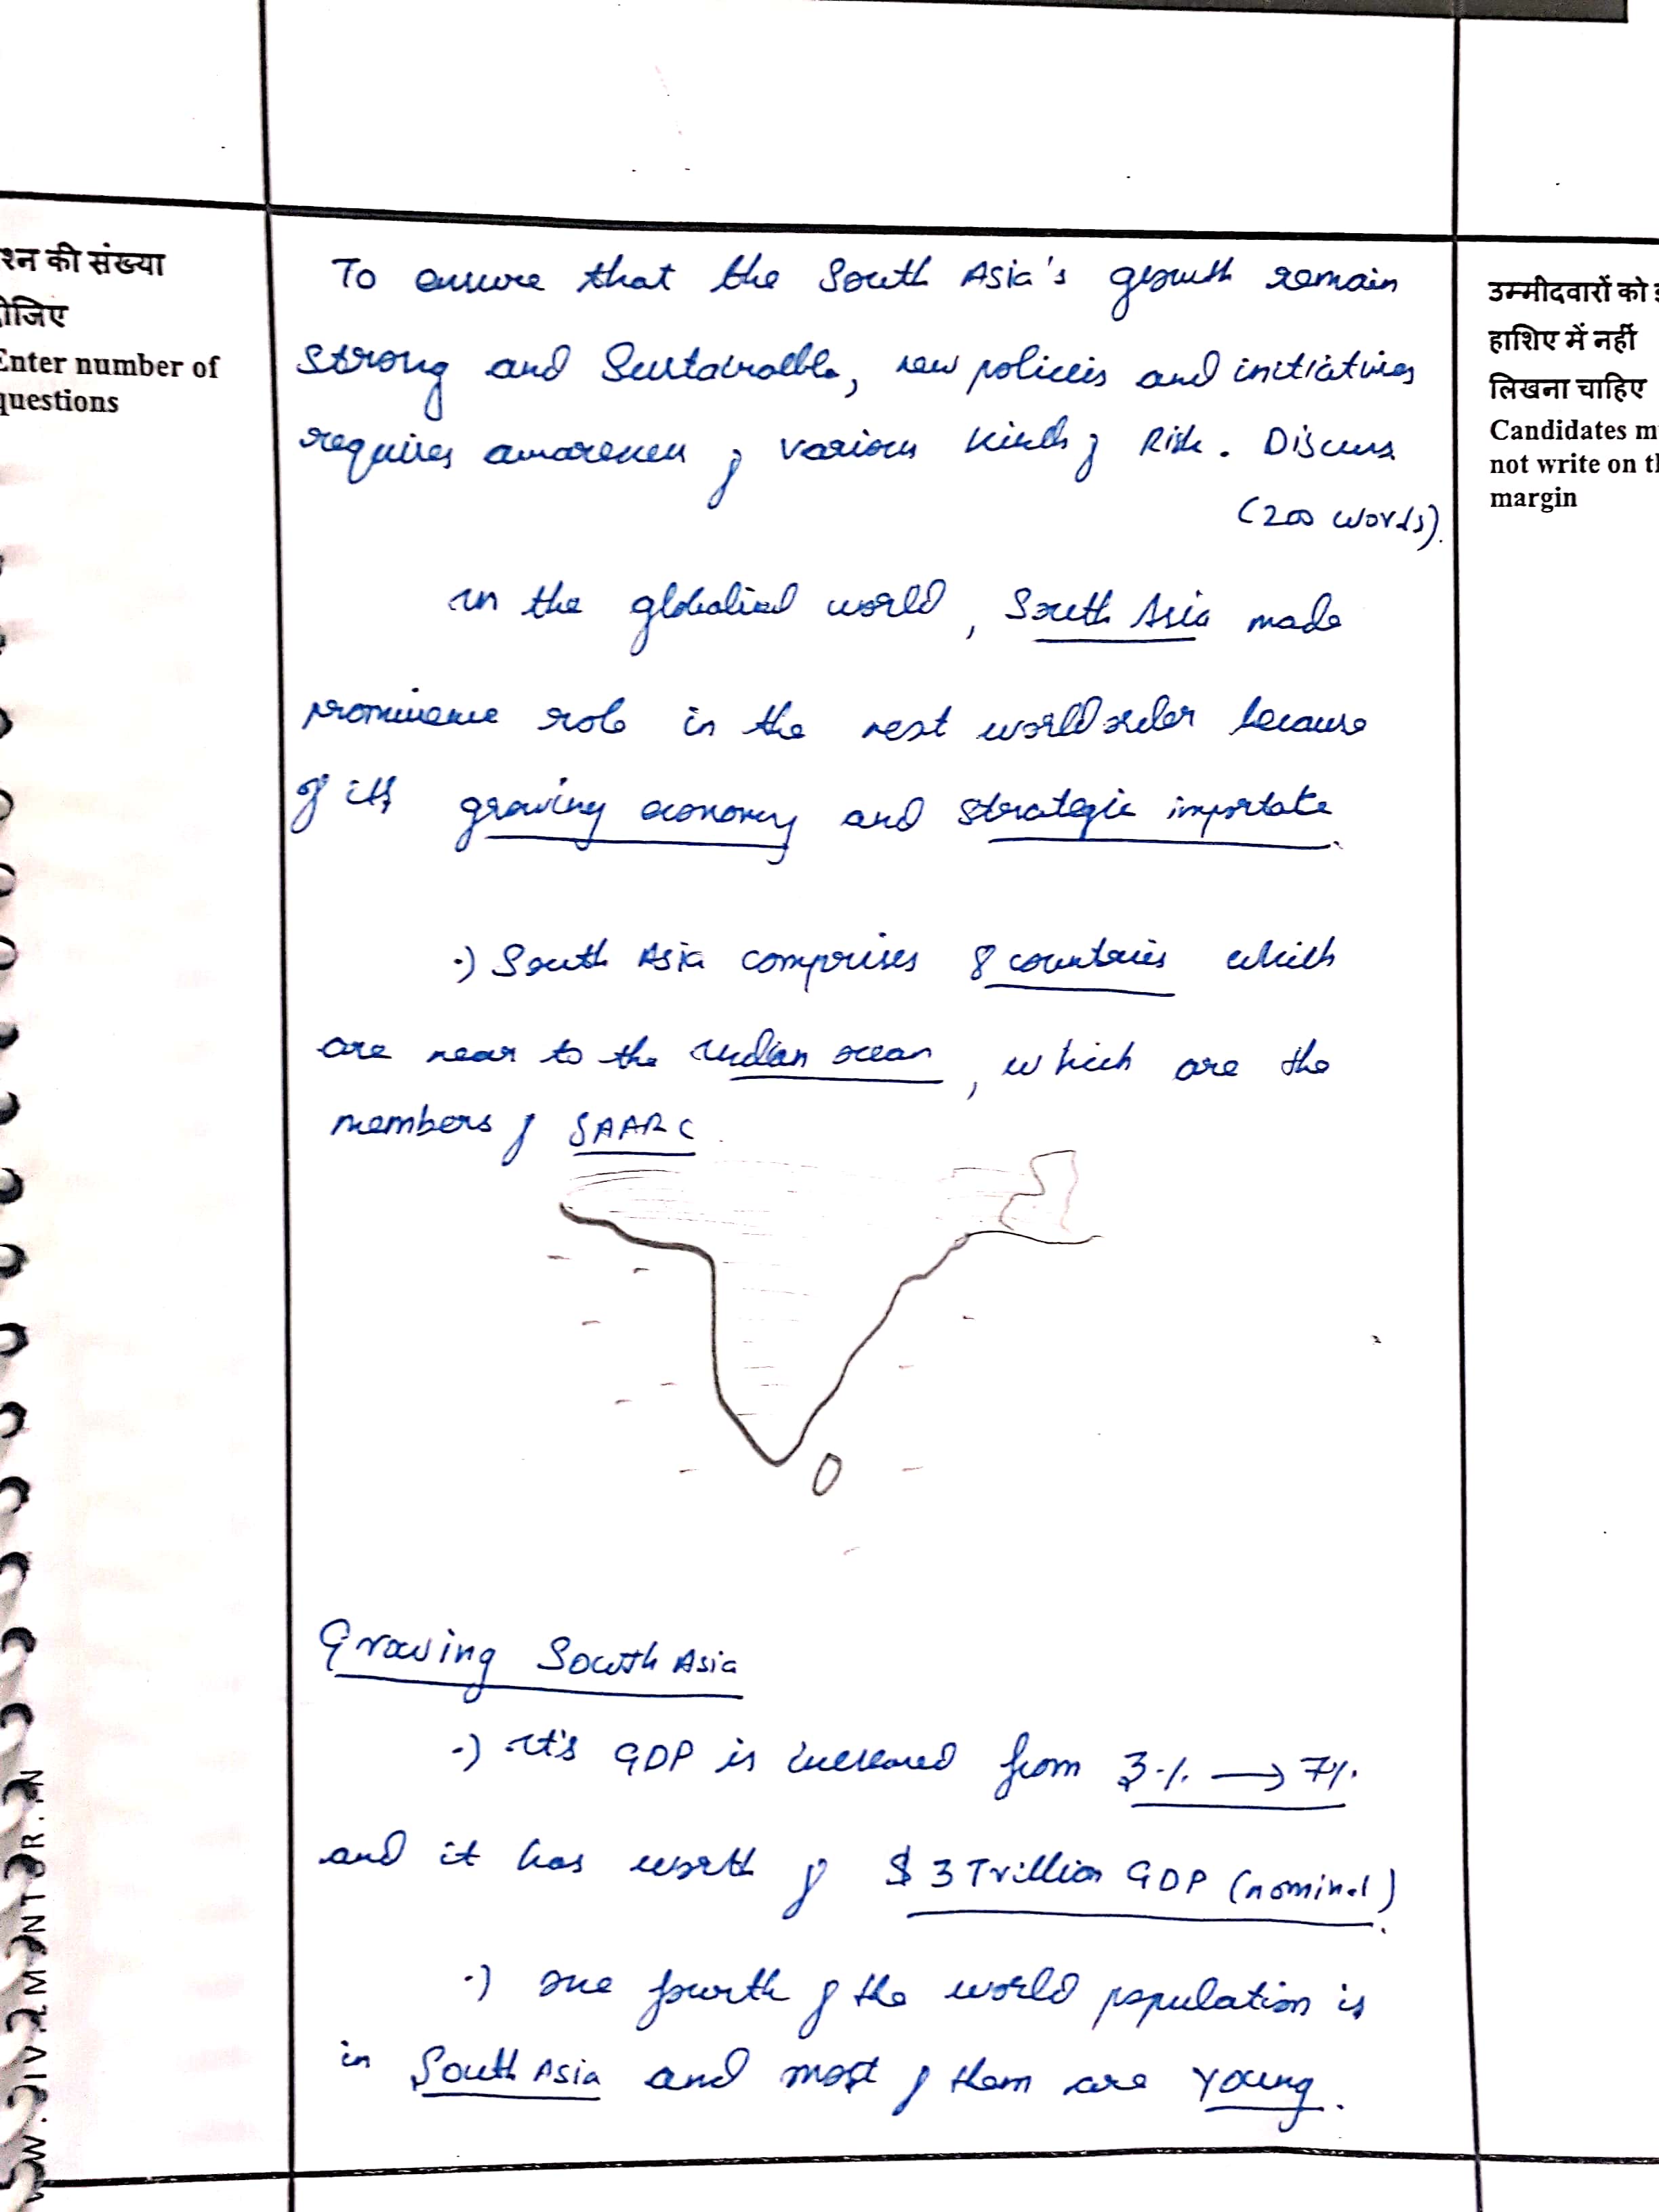 श्न की संख्या
ीजिए
Enter number of
questions
To ensure that the South Asia's growth remain
strong and Sustainable, new policies and initiatives
requires awareness of various kinds of Risk. Discuss
(200 words).
In the globalised world, South Asia made
prominence role in the next world order because
of its growing economy and strategic importate.
·) South Asia comprises 8 countries which
are near to the Indian ocean, which are the
members of SAARC.
Growing South Asia
·) It's GDP is increased from 3% → 7%
and it has worth of $3 Trillion GDP (nominal).
·) One fourth of the world population is
in South Asia and most of them are young.
उम्मीदवारों को इ
हाशिए में नहीं
लिखना चाहिए
Candidates m
not write on t
margin